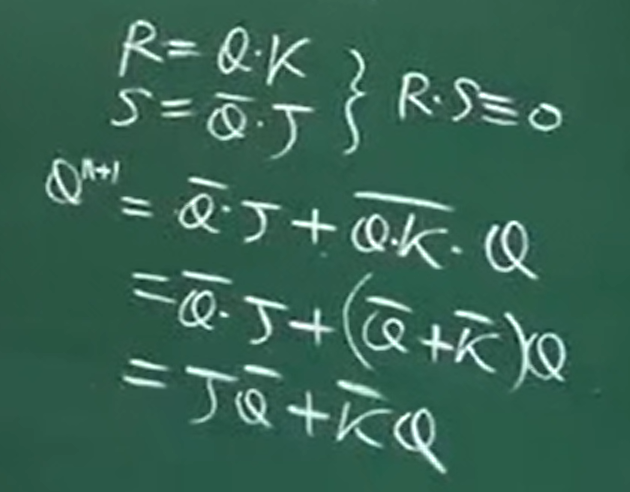 R = Q·K
S = Q̅·J } R·S ≡ 0
Qⁿ⁺¹ = Q̅·J + \overline{Q·K}·Q
= Q̅·J + (Q̅ + K̅)Q
= JQ̅ + K̅Q